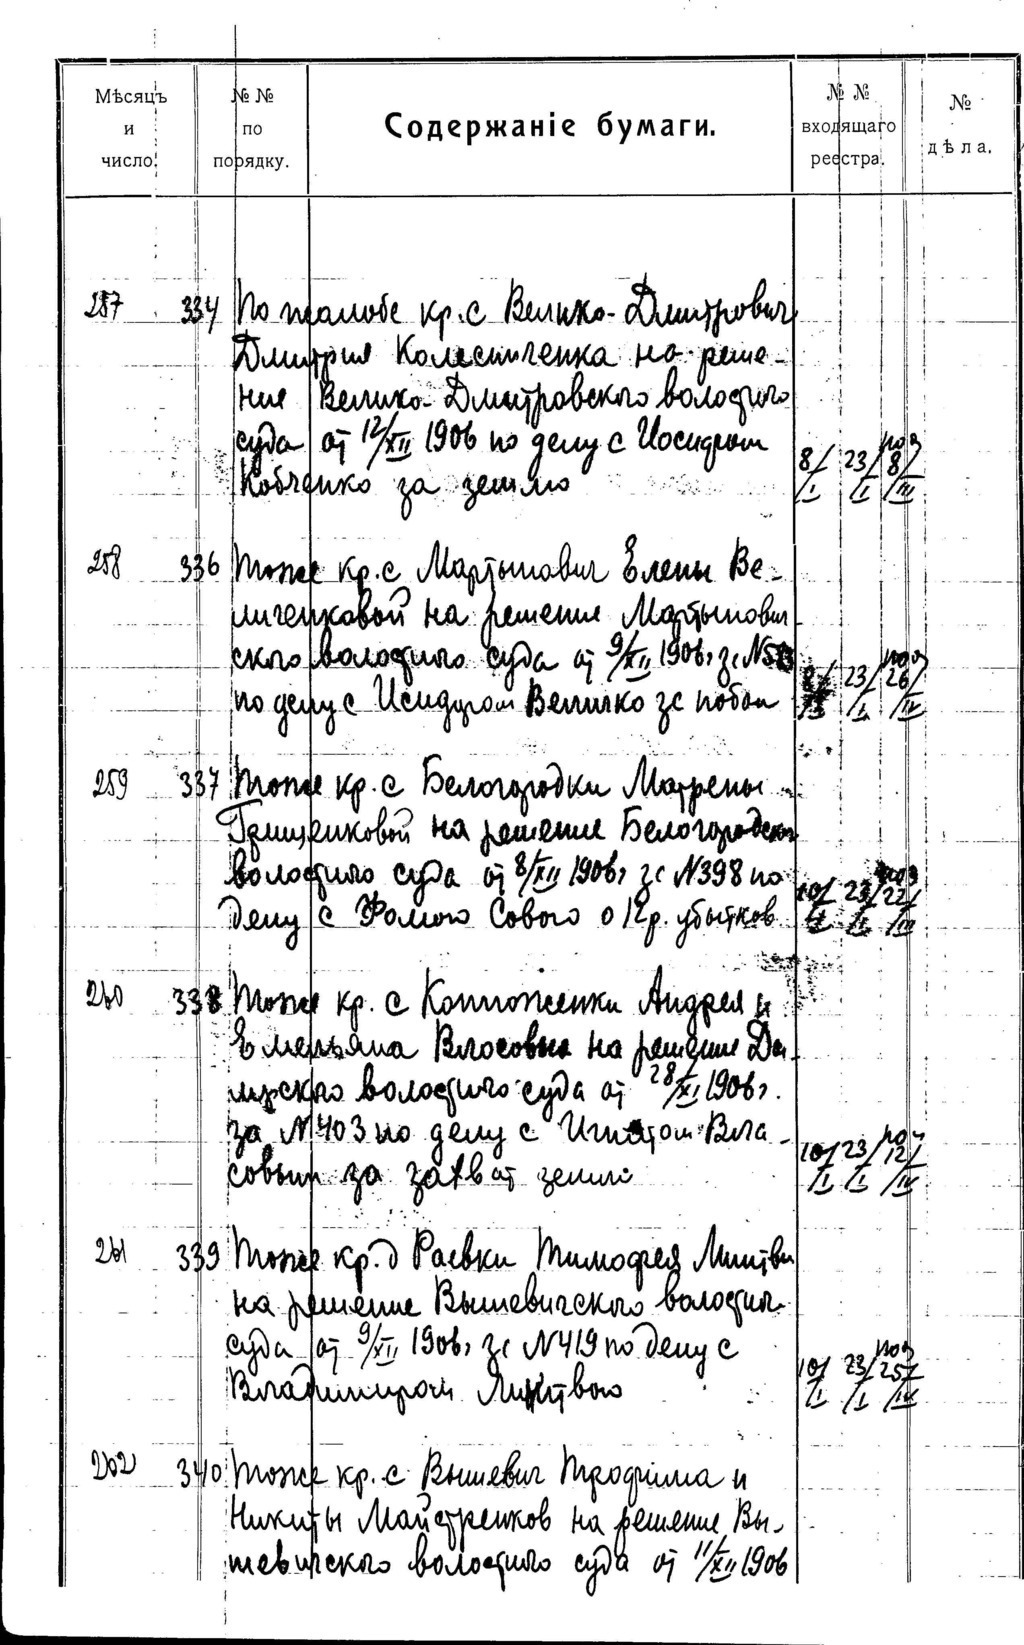 Мѣсяцъ и число.
№ № по порядку.
Содержаніе бумаги.
№ № входящаго реестра.
№ дѣла.
257 334 По жалобе кр. с Велико-Дмитрович
Дмитрия Колесниченка на реше-
ние Велико-Дмитровского волостного
суда от 12/XII 1906 по делу с Иосифом
Кобченко за землю 8/I 23/I 8/III
258 336 Тоже кр. с Мартынович Елены Ве-
личенковой на решение Мартынович
ского волостного суда от 9/XII 1906г за N513
по делу с Исидором Величко за побои 8/I 23/I 26/IV
259 337 Тоже кр. с Белогородки Матрены
Грищенковой на решение Белогородского
волостного суда от 8/XII 1906г за N398 по
делу с Фомою Совою о 12р. убытков 10/I 23/I 22/III
260 338 Тоже кр. с Андрея и
Емельяна Власовых на решение Ды
мерского волостного суда от 28/XI 1906г.
за N403 по делу с Игнатом Вла-
совым за захват земли 10/I 23/I 12/IV
261 339 Тоже кр. д Раевки Тимофея Литвы
на решение Вышевичского волостн.
суда от 9/XII 1906г за N419 по делу с
Владимиром Литвою 10/I 23/I 25/IV
262 340 Тоже кр. с Вышевич Трофима и
Никиты Майстренков на решение Вы-
шевичского волостного суда от 11/XII 1906